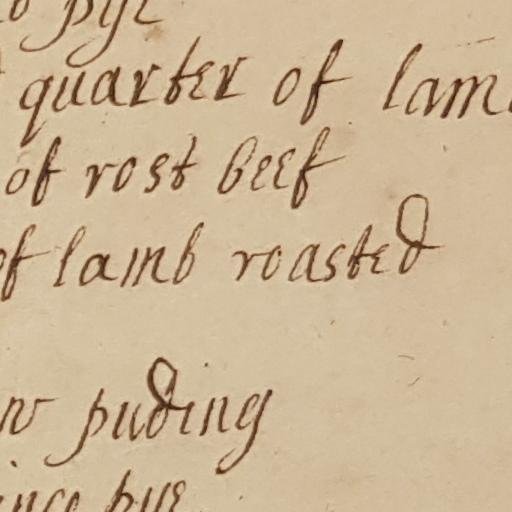 pye
quarter of lam
of rost beef
of lamb roasted
puding
ince pye